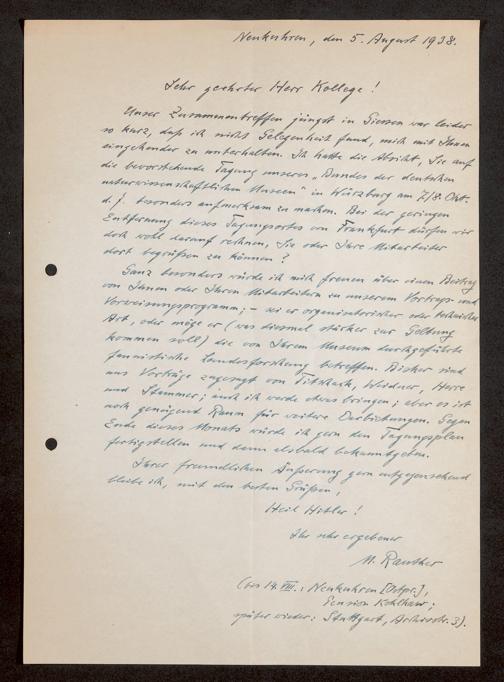 Neukuhren, den 5. August 1938.
Sehr geehrter Herr Kollege!
Unser Zusammentreffen jüngst in Giessen war leider
so kurz, daß ich nicht Gelegenheit fand, mich mit Ihnen
eingehender zu unterhalten. Ich hatte die Absicht, Sie auf
die bevorstehende Tagung unseres „Bundes der deutschen
naturwissenschaftlichen Museen" in Würzburg am 7/8. Okt.
d. J. besonders aufmerksam zu machen. Bei der geringen
Entfernung dieses Tagungsortes von Frankfurt dürfen wir
doch wohl darauf rechnen, Sie oder Ihre Mitarbeiter
dort begrüßen zu können?
Ganz besonders würde ich mich freuen über einen Beitrag
von Ihnen oder Ihren Mitarbeitern zu unserem Vortrags- und
Vorweisungsprogramm; – sei er organisatorischer oder technischer
Art, oder möge er (was diesmal stärker zur Geltung
kommen soll) die von Ihrem Museum durchgeführte
faunistische Landesforschung betreffen. Bisher sind
uns Vorträge zugesagt von Titschack, Weidner, Herre
und Stammer; auch ich werde etwas bringen; aber es ist
noch genügend Raum für weitere Darbietungen. Gegen
Ende dieses Monats würde ich gern den Tagungsplan
fertigstellen und dann alsbald bekanntgeben.
Ihrer freundlichen Äußerung gern entgegensehend
bleibe ich, mit den besten Grüßen,
Heil Hitler!
Ihr sehr ergebener
M. Rauther
(bis 14. VIII.: Neukuhren [Ostpr.],
Pension
später wieder: Stuttgart, Archivstr. 3).